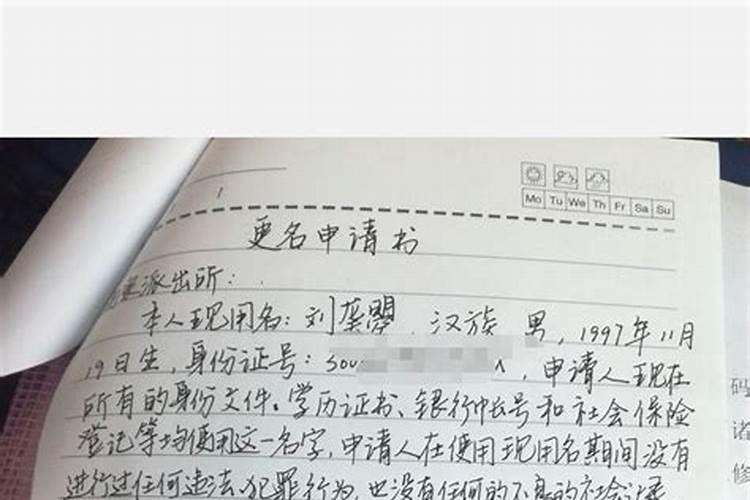 Mo Tu We Th Fr Sa Su
更名申请书
派出所:
本人现用名:刘 ,汉族 男,1997年11月
19日生,身份证号: ,申请人现在
所有的身份文件。学历证书、银行帐号和社会保险
登记等均使用这一名字,申请人在使用现用名期间没有
进行过任何违法、犯罪行为,也没有任何的不良的社会记录
码
诸
修